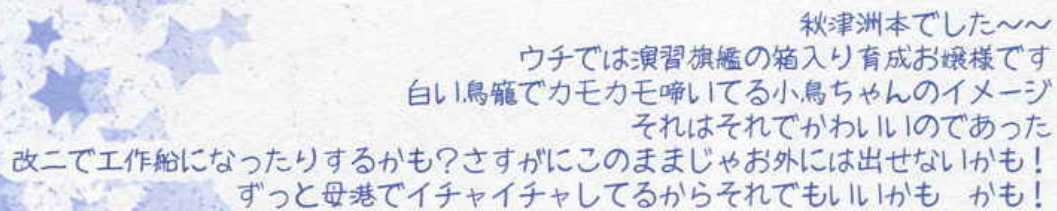 秋津洲本でした～～
ウチでは演習旗艦の箱入り育成お嬢様です
白い鳥籠でカモカモ啼いてる小鳥ちゃんのイメージ
それはそれでかわいいのであった
改二で工作船になったりするかも？さすがにこのままじゃお外には出せないかも！
ずっと母港でイチャイチャしてるからそれでもいいかも　かも！